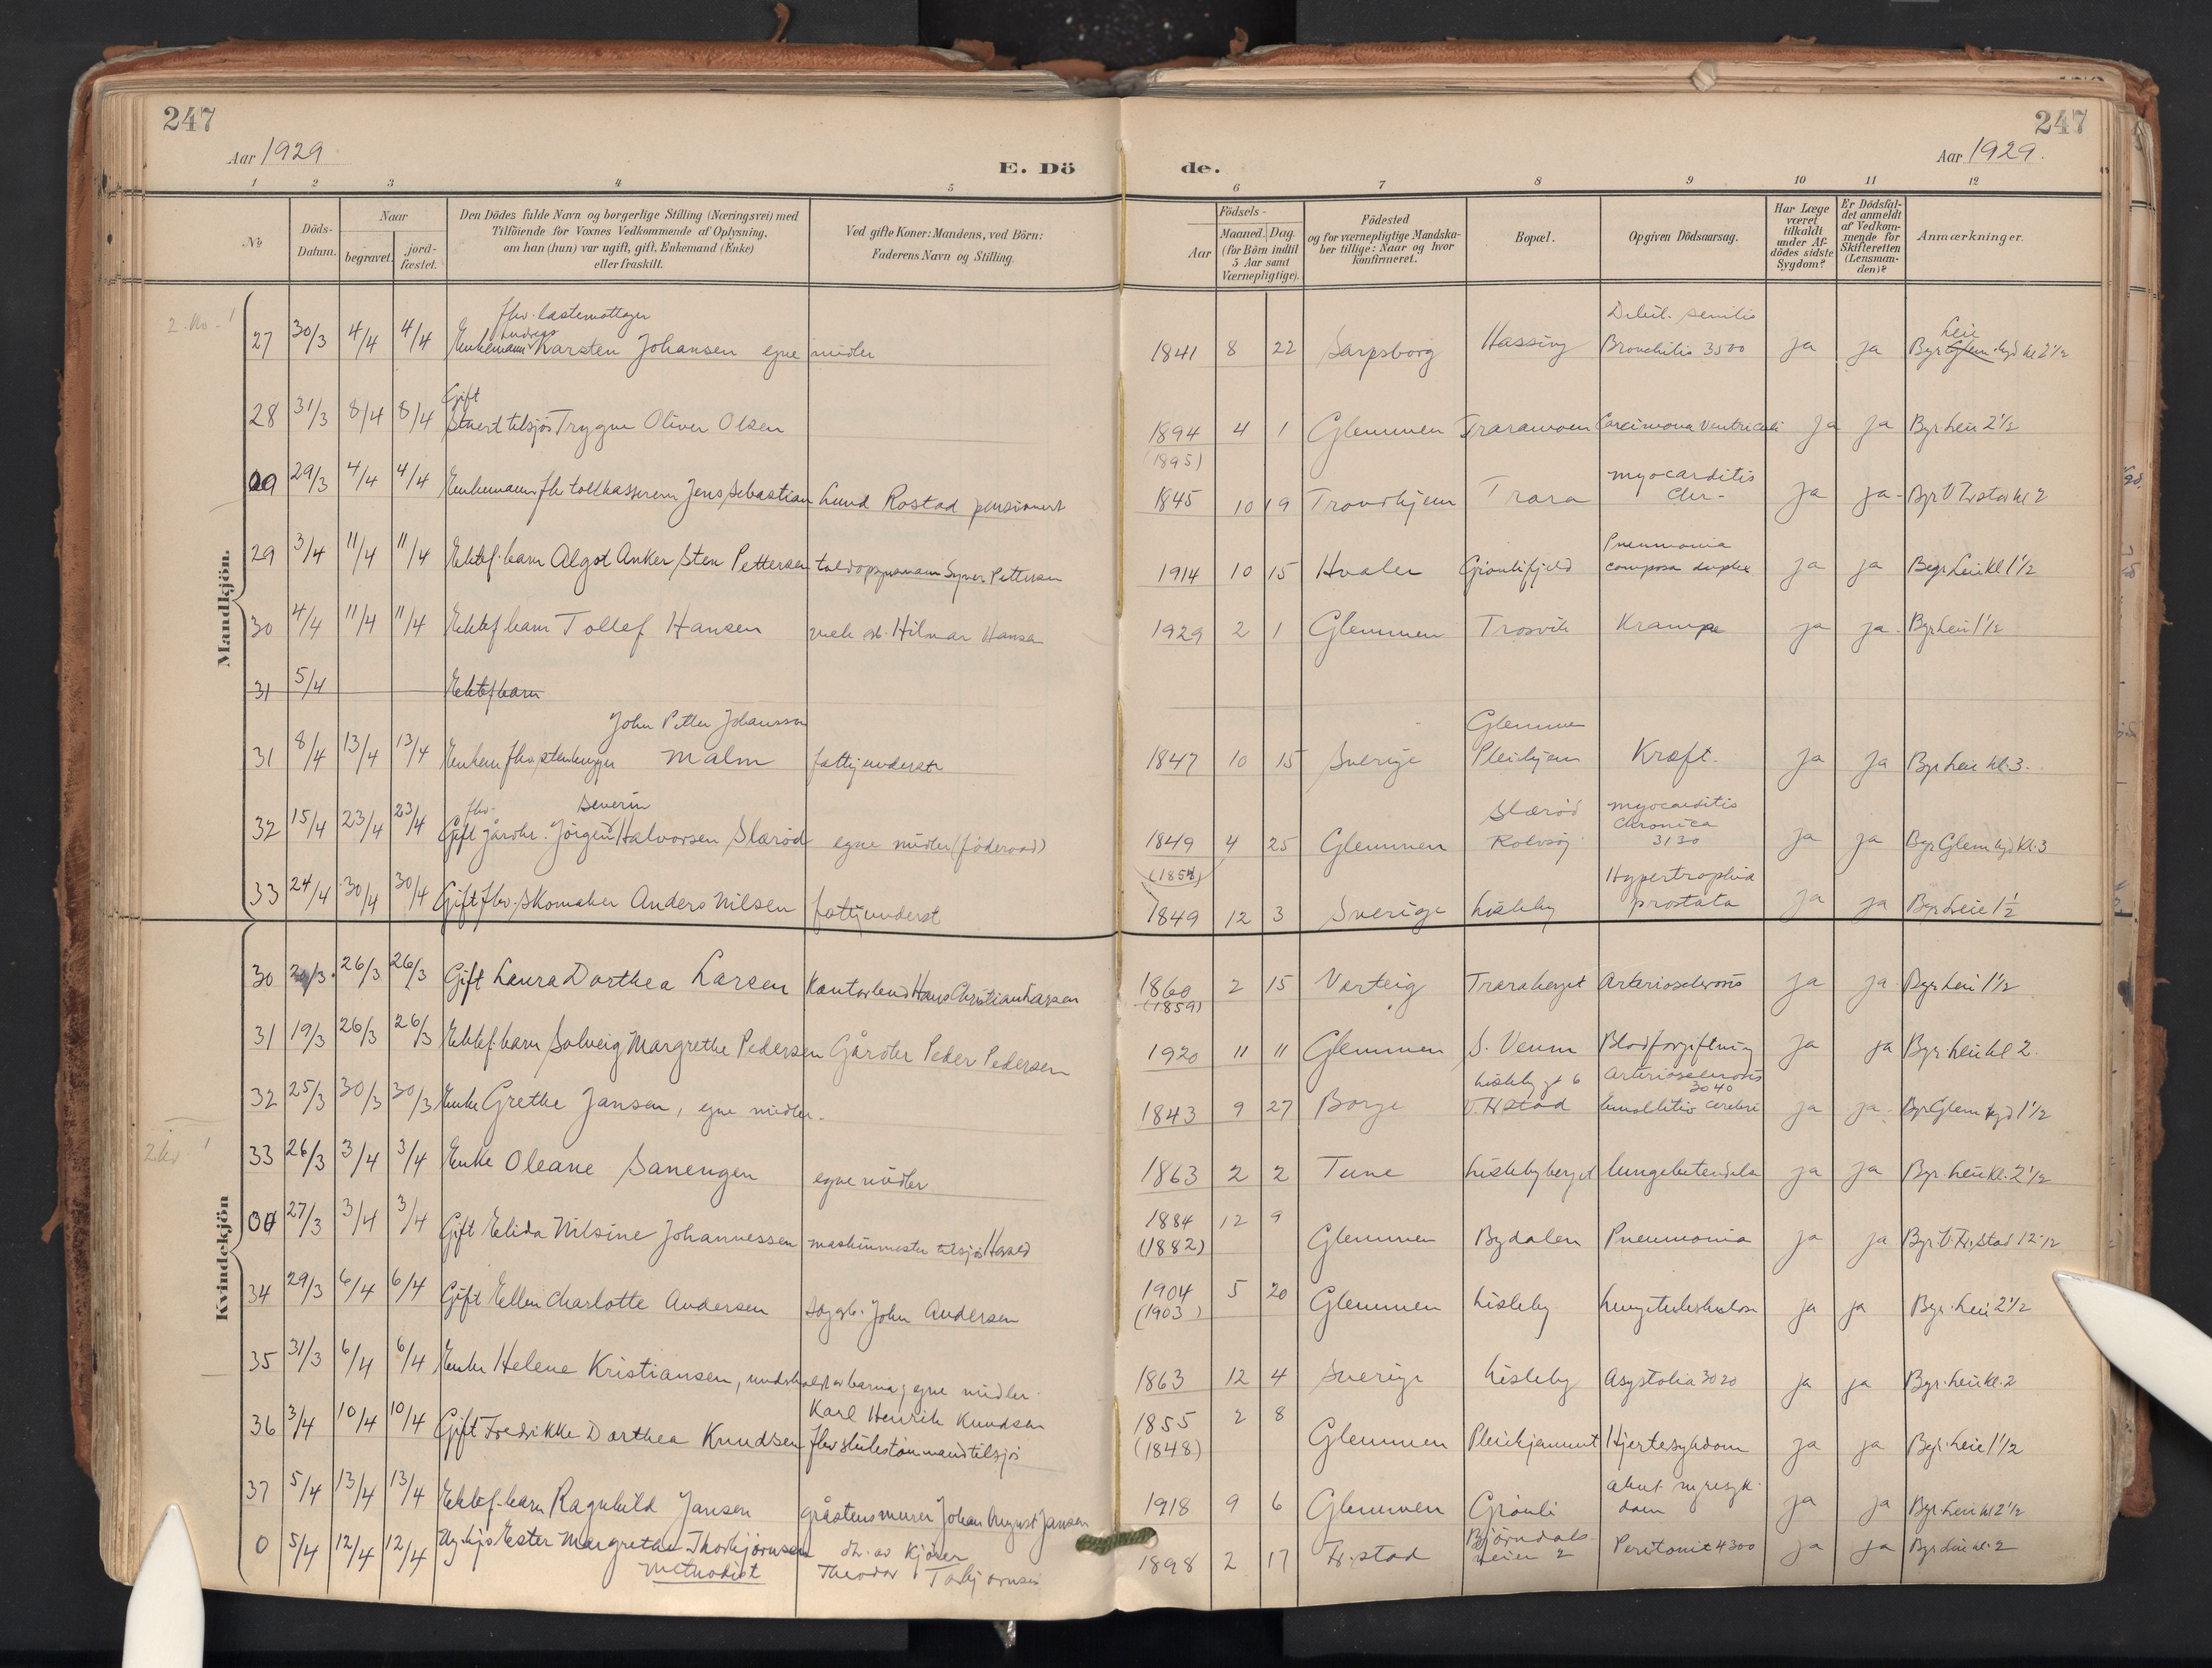 247
247
Aar 1929
Aar 1929.
E. Dö
de.
1 2 3 4 5 6 7 8 9 10 11 12
No
Döds-
Datum.
Naar
begravet.
jord-
fæstet.
Den Dödes fulde Navn og borgerlige Stilling (Næringsvei) med
Tilföiende for Voxnes Vedkommende af Oplysning,
om han (hun) var ugift, gift, Enkemand (Enke)
eller fraskilt.
Ved gifte Koner: Mandens, ved Börn:
Faderens Navn og Stilling.
Födsels-
Aar
Maaned. Dag.
(for Börn indtil
5 Aar samt
Værnepligtige).
Födested
og for værnepligtige Mandska-
ber tillige: Naar og hvor
konfirmeret.
Bopæl.
Opgiven Dödsaarsag.
Har Læge
været
tilkaldt
under Af-
dödes sidste
Sygdom?
Er Dödsfal-
det anmeldt
af Vedkom-
mende for
Skifteretten
(Lensman-
den)?
Anmærkninger.
Mandkjön.
fhv. lastemottager
Anders
27 30/3 4/4 4/4 Enkemann Karsten Johansen egne midler 1841 8 22 Sarpsborg Hassing Debil. senilis Bronchitis 3500 ja ja Byr Glem. kgd kl 2 1/2
Leie
Gift
28 31/3 8/4 8/4 Stuert tilsjös Trygve Oliver Olsen 1894 (1895) 4 1 Glemmen Traramoen Carcinoma Ventriculi ja ja Byr Leie 2 1/2
09 29/3 4/4 4/4 Enkemann fhv tollkasserer Jens Sebastian Lund Rostad pensionert 1845 10 19 Trondhjem Trara myocarditis chr- ja ja- Byr V Fr.stad kl 2
29 3/4 11/4 11/4 Ektef. barn Algot Anker Sten Pettersen toldopsynsmann Syver Pettersen 1914 10 15 Hvaler Grönlifjeld Pneumonia crouposa duplex ja ja Begr Leie kl 1 1/2
30 4/4 11/4 11/4 Ektef barn Tollef Hansen mek arb. Hilmar Hansen 1929 2 1 Glemmen Trosvik Krampe ja ja- Byr Leie 1 1/2
31 5/4 Ektef barn
John Petter Johansson
31 8/4 13/4 13/4 Enkem fhv stenhugger Malm fattigunderst 1847 10 15 Sverige Glemmen Pleiehjem Kræft. ja ja Byr Leie kl. 3.
fhv. Severin
32 15/4 23/4 23/4 Gift gårdbr. Jörgen Halvorsen Skaröd egne midler (föderaad) 1849 4 25 Glemmen Skaröd Rolvsöj myocarditis chronica 3130 ja ja Byr Glem kgd kl. 3
(1854)
33 24/4 30/4 30/4 Gift fhv. skomaker Anders Nilsen fattigunderst 1849 12 3 Sverige Lisleby Hypertrophia prostata ja ja Byr Leie 1 1/2
Kvindekjön
30 26/3 26/3 Gift Laura Dorthea Larsen Kontorbud Hans Christian Larsen 1860 (1859) 2 15 Varteig Traraberget Arteriosclerosis ja ja Byr Leie 1 1/2
31 19/3 26/3 26/3 Ektef. barn Solveig Margrethe Pedersen Gårdbr Peder Pedersen 1920 11 11 Glemmen S. Veum Blodforgiftning ja ja Byr. Leie kl 2.
32 25/3 30/3 30/3 Enke Grethe Jansen, egne midler. 1843 9 27 Borge Lisleby gt 6 V. Fr.stad Arteriosclerosis 3040 Emollitio cerebri ja ja. Byr Glem kgd 1 1/2
33 26/3 3/4 3/4 Enke Oleane Sanengen egne midler 1863 2 2 Tune Lislebyberget lungebetendelse ja ja Byr. Leie kl. 2 1/2
00 27/3 3/4 3/4 Gift Elida Nilsine Johannessen maskinmester tilsjös Harald 1884 (1882) 12 9 Glemmen Bydalen Pneumonia ja ja Byr V. Fr.stad 12 1/2
34 29/3 6/4 6/4 Gift Ellen Charlotte Andersen sagarb. John Andersen 1904 (1903) 5 20 Glemmen Lisleby Lungetuberkulose ja ja Byr. Leie 2 1/2
35 31/3 6/4 6/4 Enke Helene Kristiansen, underholdt av barna, egne midler. 1863 12 4 Sverige Lisleby Asystolia 3020 ja ja Byr. Leie kl. 2
36 3/4 10/4 10/4 Gift Fredrikke Dorthea Knudsen Karl Henrik Knudsen fhv skibstömmermand tilsjös 1855 (1848) 2 8 Glemmen Pleiehjemmet Hjertesykdom ja ja Byr. Leie 1 1/2
37 5/4 13/4 13/4 Ektef. barn Ragnhild Jansen gråstensmurer Johan August Jansen 1918 9 6 Glemmen Grönli akut nyresyk- dom ja ja Byr. Leie kl 2 1/2
0 5/4 12/4 12/4 Ester Margrethe Thorbjörnsen dtr. av Kjörer Theodor Torbjörnsen 1898 2 17 Fr.stad Björndals- veien 2 Peritonit 4300 ja ja Byr Leie kl. 2
methodist